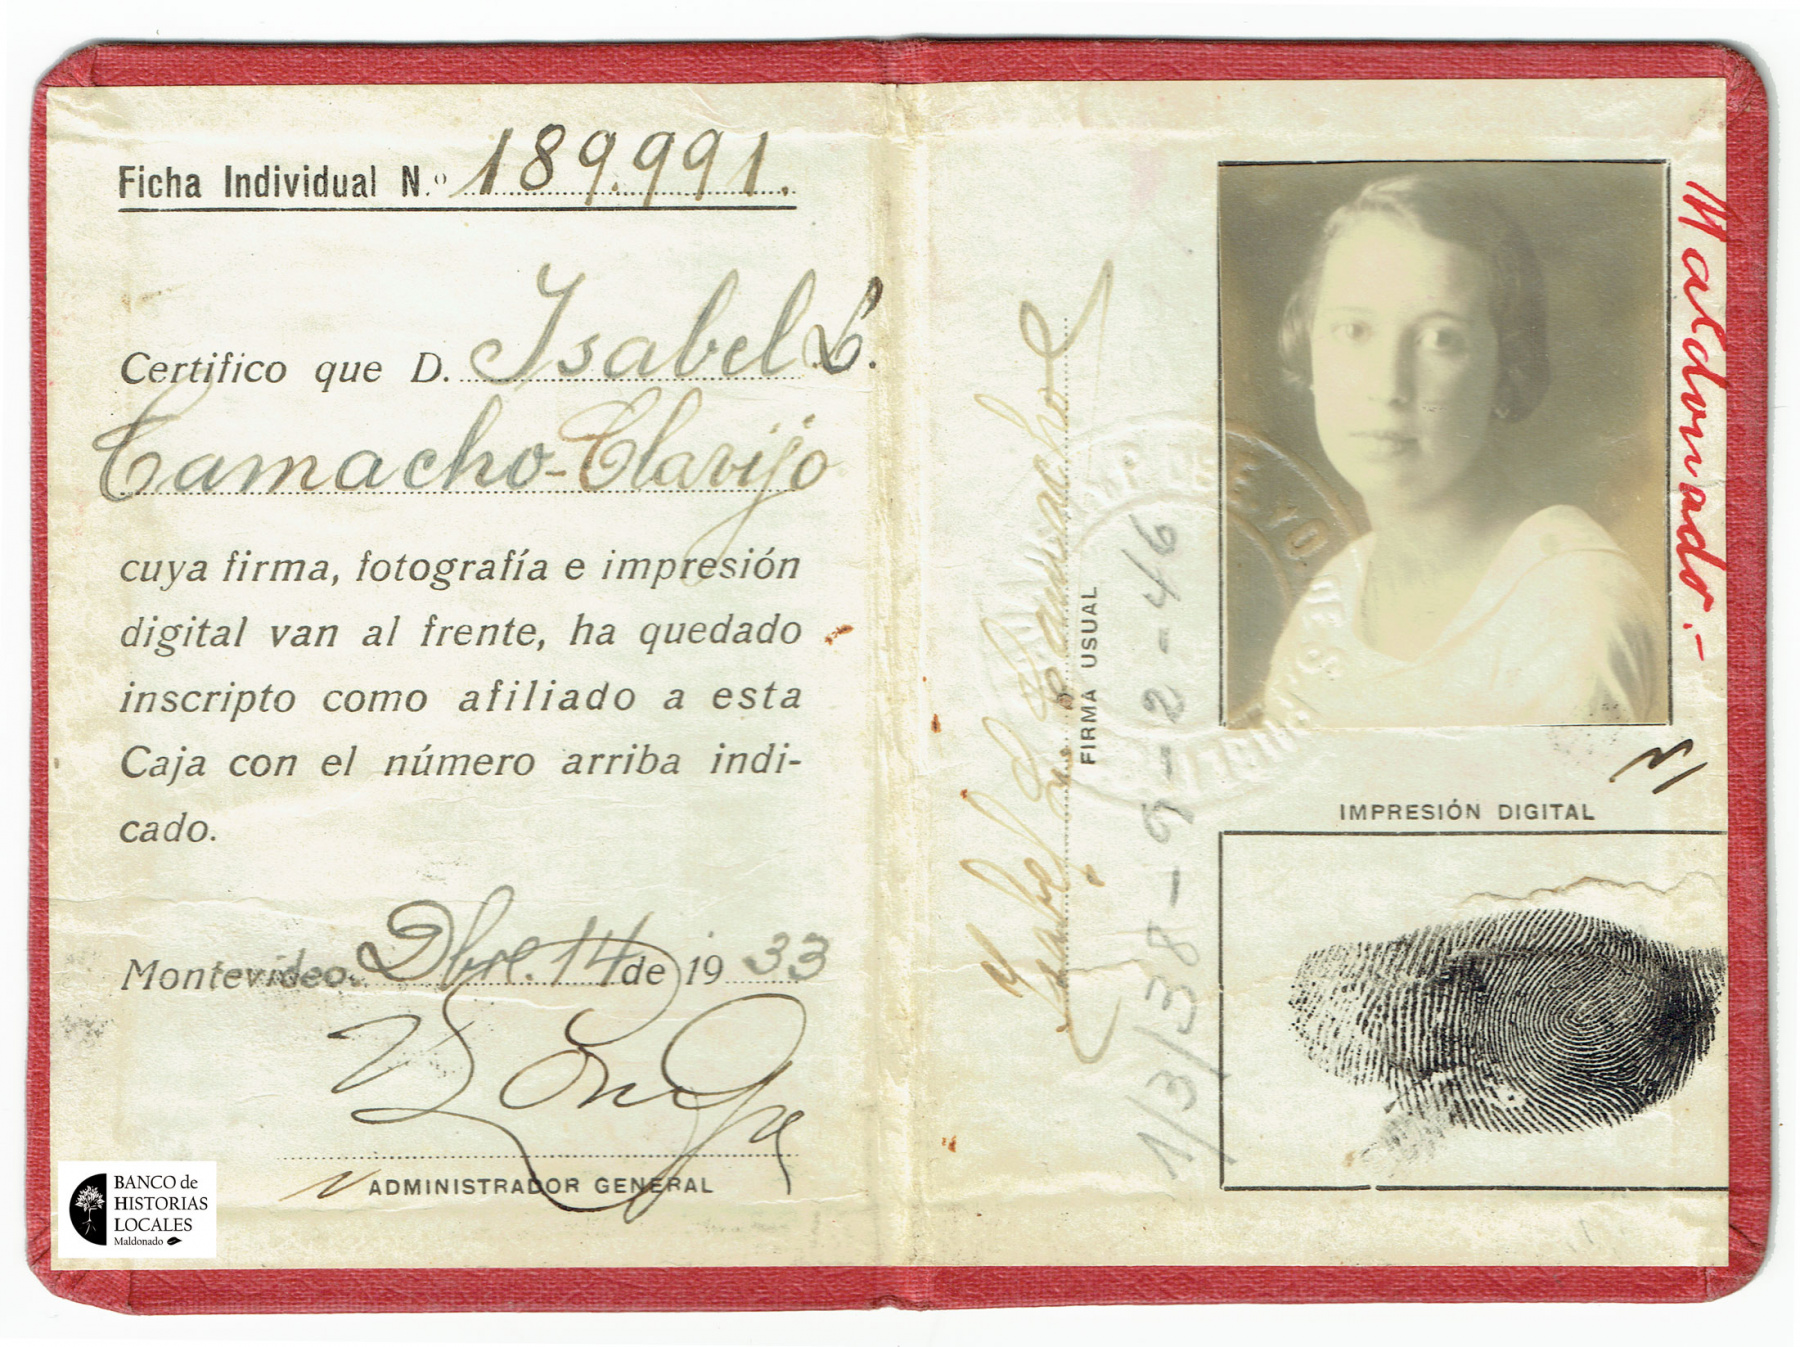 Ficha Individual N.º 189.991.
Certifico que D. Isabel L.
Camacho-Clavijo
cuya firma, fotografía e impresión
digital van al frente, ha quedado
inscripto como afiliado a esta
Caja con el número arriba indi-
cado.
Montevideo. Dbre. 14 de 1933
ADMINISTRADOR GENERAL
BANCO de
HISTORIAS
LOCALES
Maldonado
Isabel L. Camacho
FIRMA USUAL
1/3/38-9-2-46
Maldonado.-
IMPRESIÓN DIGITAL